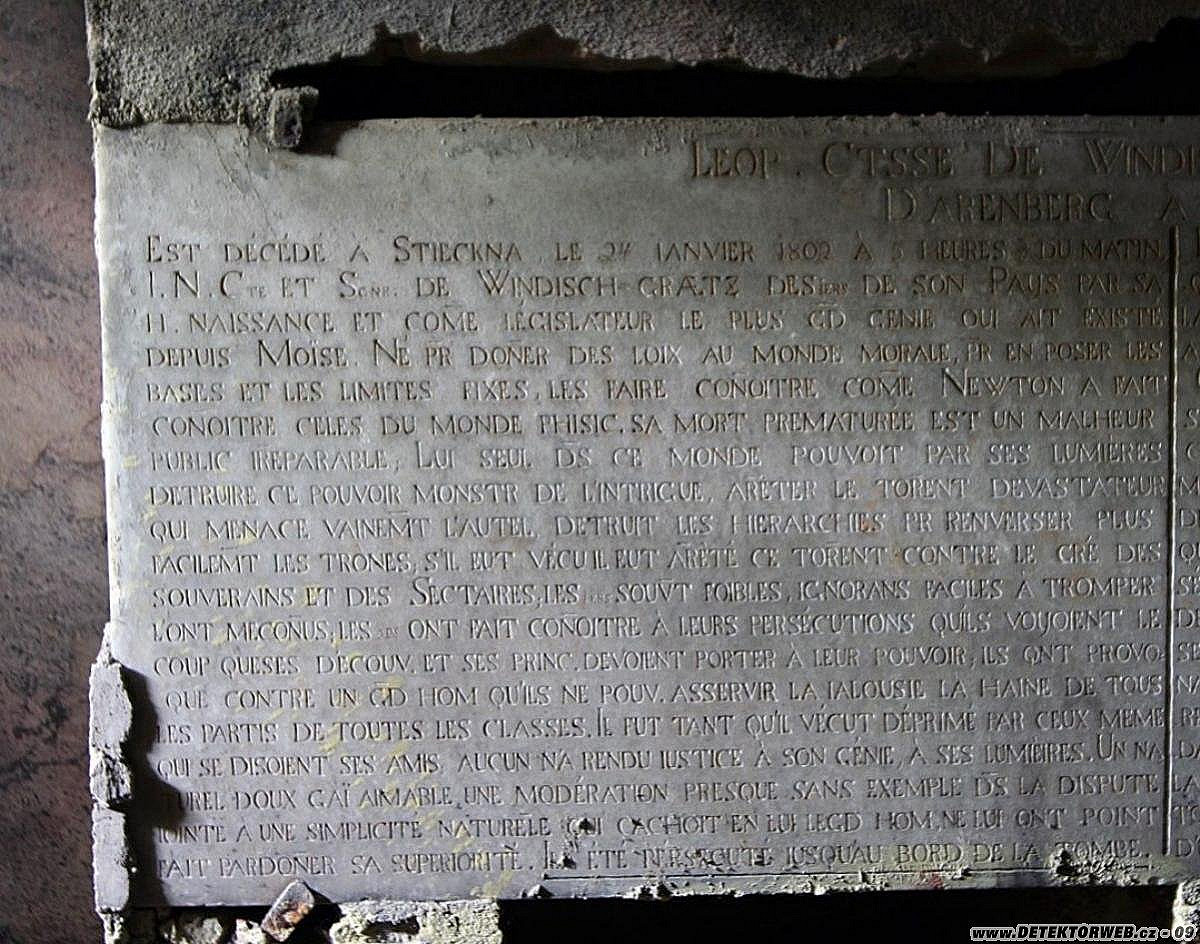 LEOP. CTSSE DE WINDI
D'ARENBERG A
EST DÉCÉDÉ A STIECKNA LE 24 IANVIER 1802 À 5 HEURES DU MATIN
I.N.CTE ET SGNR. DE WINDISCH-GRÆTZ DES IERS DE SON PAYS PAR SA
H. NAISSANCE ET COM̄E LÉGISLATEUR LE PLUS GD GENIE QUI AIT EXISTE
DEPUIS MOÏSE. NÉ PR DON̄ER DES LOIX AU MONDE MORALE, PR EN POSER LES
BASES ET LES LIMITES FIXES, LES FAIRE CON̄OITRE COM̄E NEWTON A FAIT
CONOITRE CELES DU MONDE PHISIC. SA MORT PREMATURÉE EST UN MALHEUR
PUBLIC IREPARABLE; LUI SEUL DS̄ CE MONDE POUVOIT PAR SES LUMIÈRES
DETRUIRE CE POUVOIR MONSTR DE L'INTRIGUE, ARÊTER LE TORENT DEVASTATEUR
QUI MENACE VAINEM̄T L'AUTEL, DETRUIT LES HIERARCHIES PR RENVERSER PLUS
FACILEMT LES TRONES; S'IL EUT VÉCU IL EUT ARÊTÉ CE TORENT CONTRE LE GRÉ DES
SOUVERAINS ET DES SECTAIRES; LES SOUVT̄ FOIBLES, IGNORANS FACILES A TROMPER
L'ONT MECON̄US, LES ONT FAIT CON̄OITRE À LEURS PERSÉCUTIONS QU'ILS VOYOIENT LE
COUP QUE SES DECOUV. ET SES PRINC. DEVOIENT PORTER À LEUR POUVOIR; ILS ONT PROVO-
QUÉ CONTRE UN GD HOM QU'ILS NE POUV. ASSERVIR LA IALOUSIE LA HAINE DE TOUS
LES PARTIS DE TOUTES LES CLASSES. IL FUT TANT QU'IL VÉCUT DÉPRIMÉ PAR CEUX MEME
QUI SE DISOIENT SES AMIS, AUCUN N'A RENDU IUSTICE À SON GÉNIE, A SES LUMIÈIRES. UN NA
TUREL DOUX GAÏ AIMABLE UNE MODÉRATION PRESQUE SANS EXEMPLE DS̄ LA DISPUTE
IOINTE A UNE SIMPLICITÉ NATURELE QUI CACHOIT EN LUI LE GD HOM, NE LUI ONT POINT
FAIT PARDONER SA SUPERIORITÉ. IL A ÉTÉ PERSECUTÉ IUSQU'AU BORD DE LA TOMBE.
www.DETEKTORWEB.cz - 09